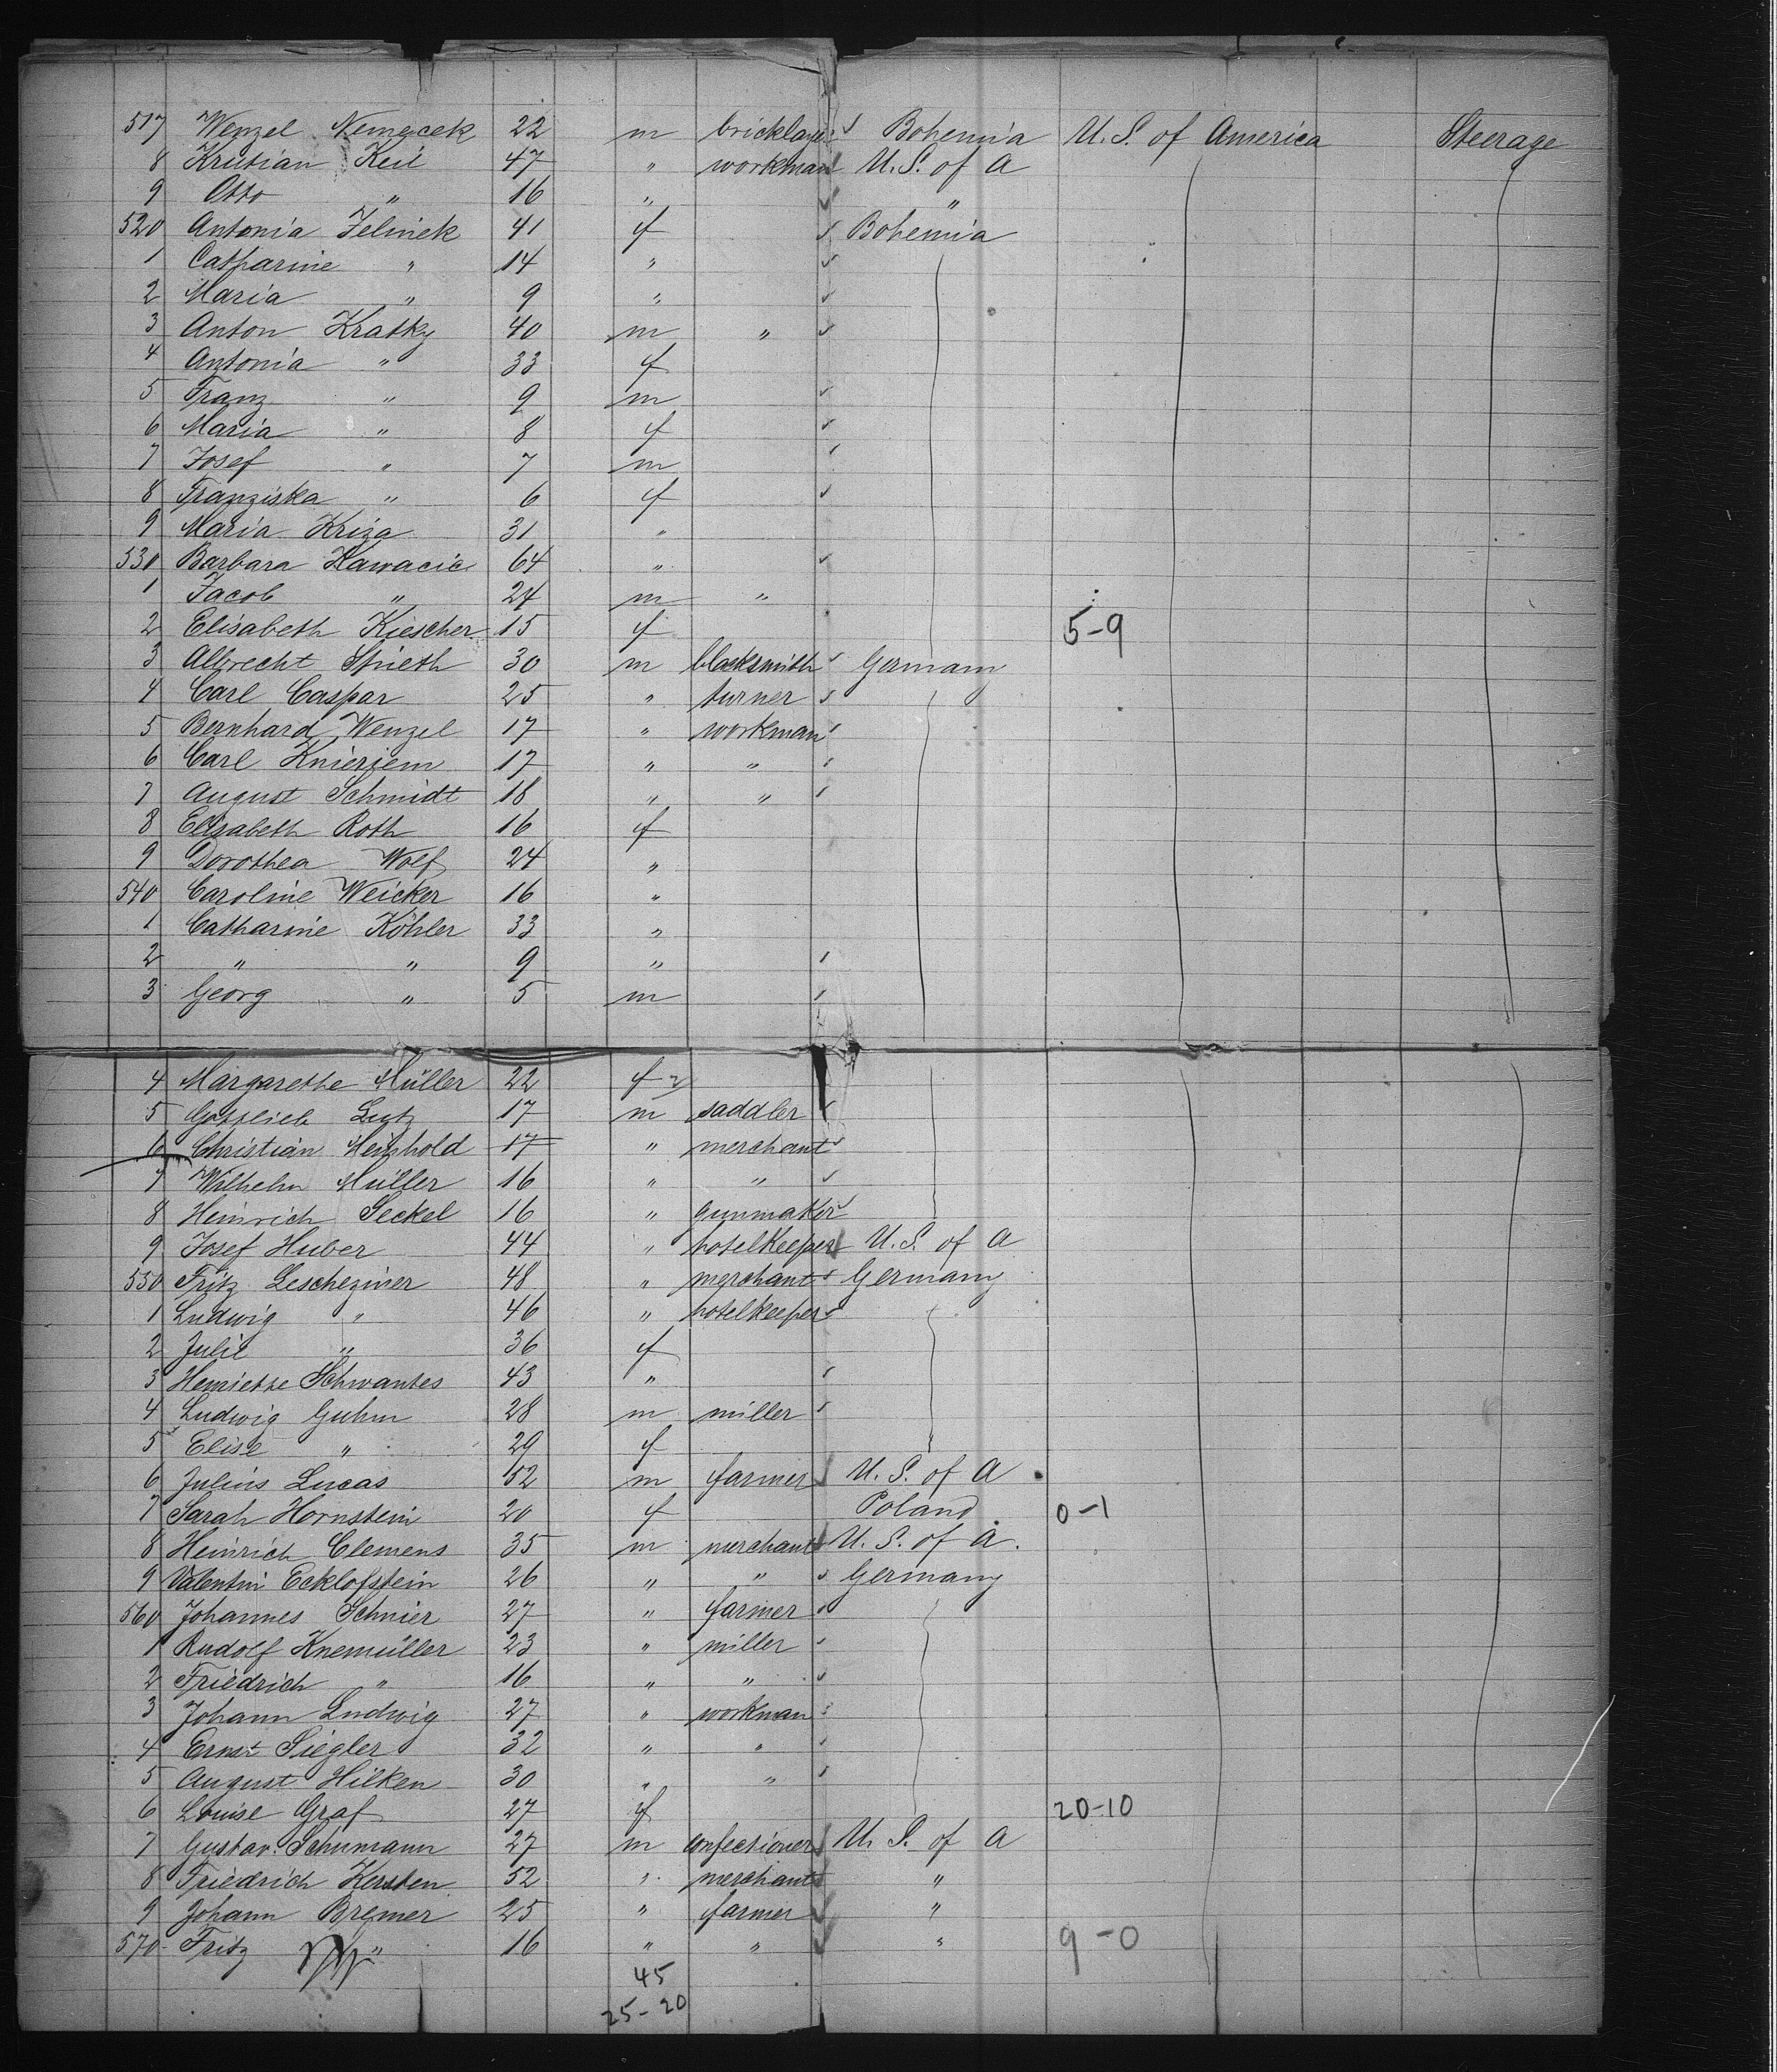 517 Wenzel Nemecek 22 m bricklayer Bohemia U.S. of America Steerage
8 Kristian Keil 47 " workman U.S. of A
9 Otto " 16 " "
520 Antonia Jelinek 41 f Bohemia
1 Catharine " 14 "
2 Maria " 9 "
3 Anton Kratky 40 m "
4 Antonia " 33 f
5 Franz " 9 m
6 Maria " 8 f
7 Josef " 7 m
8 Franziska " 6 f
9 Maria Kriza 31 "
530 Barbara Kawacic 64 "
1 Jacob " 24 m "
2 Elisabeth Kiescher 15 f 5-9
3 Albrecht Spieth 30 m blacksmith Germany
4 Carl Caspar 25 " turner
5 Bernhard Wenzel 17 " workman
6 Carl Knierjem 17 " "
7 August Schmidt 18 " "
8 Elisabeth Roth 16 f
9 Dorothea Wolf 24 "
540 Caroline Weicker 16 "
1 Catharine Köhler 33 "
2 " " 9 "
3 Georg " 5 m
4 Margarethe Müller 22 f
5 Gottlieb Lutz 17 m saddler
6 Christian Heinhold 17 " merchant
7 Wilhelm Müller 16 " "
8 Heinrich Seckel 16 " gunmaker
9 Josef Huber 44 " hotelkeeper U.S. of A
550 Fritz Lescheziner 48 " merchant Germany
1 Ludwig " 46 " hotelkeeper
2 Julie " 36 f
3 Henriette Schwantes 43 "
4 Ludwig Guhm 28 m miller
5 Elise " 29 f
6 Julius Lucas 52 m farmer U.S. of A
7 Sarah Hornstein 20 f Poland 0-1
8 Heinrich Clemens 35 m merchant U.S. of A.
9 Valentin Ecklofstein 26 " " Germany
560 Johannes Schnier 27 " farmer
1 Rudolf Knemüller 23 " miller
2 Friedrich " 16 " "
3 Johann Ludwig 27 " workman
4 Ernst Siegler 32 " "
5 August Hilken 30 " "
6 Louise Graf 27 f 20-10
7 Gustav Schumann 27 m confectioner U.S. of A
8 Friedrich Kersten 52 " merchant "
9 Johann Bremer 25 " farmer "
570 Fritz " 16 " " " 9-0
45
25-20